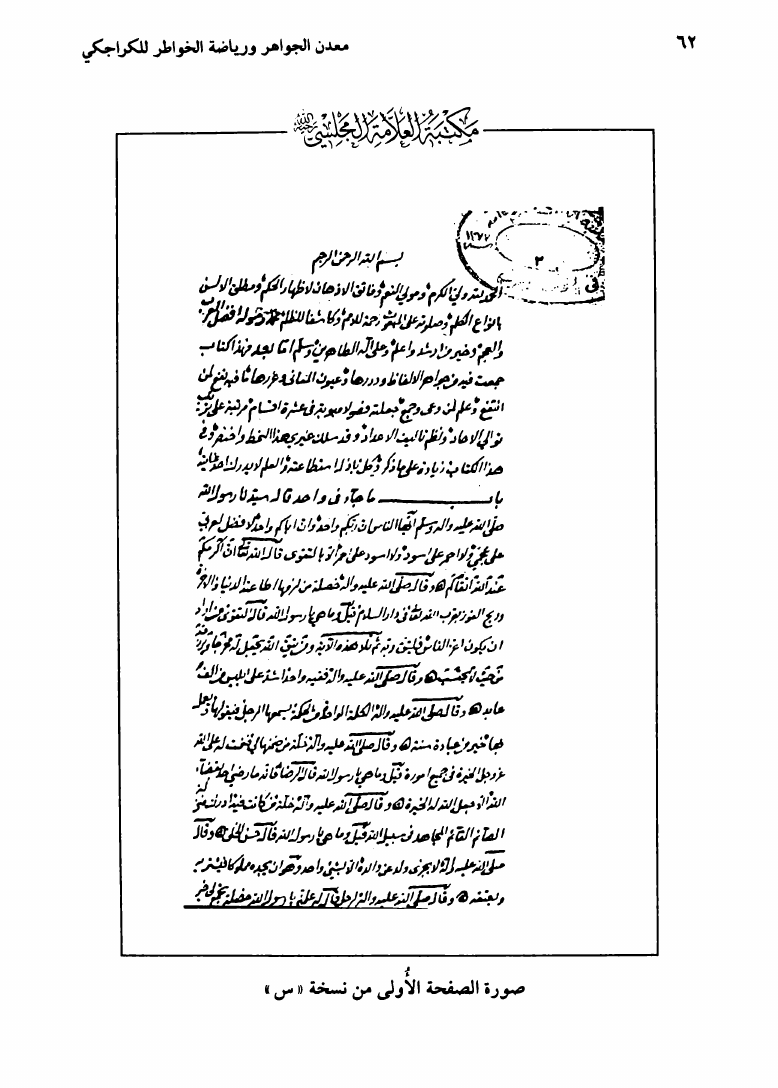 ٦٢
معدن الجواهر ورياضة الخواطر للكراجكي
مكتبة العلامة المجلسي
بسم الله الرحمن الرحيم
الحمد لله ولي الكرم ومولي النعم وفاتق الاذهان لاظهار الحكم ومطلق الالسن
بانواع الكلم وصلوته على المبعوث رحمة للامم وكاشفا للظلم محمد رسوله افضل العرب
والعجم وخير من ارشد واعلم وعلى آله الطاهرين وسلم اما بعد فهذا كتاب
جمعت فيه من جواهر الالفاظ ودررها وعيون المعاني وغررها ما فيه نفع لمن
انتفع وعلم لمن وعى وجمع جملة وفصولا مبوبة في عشرة اقسام مرتبة على
توالي الاحاد ونظم تاليف الاعداد وقد سلك غيري هذا النمط واختصر وفي
هذا الكتاب زيادة على ما ذكر وكل باذل استطاعته والعلم لا يدرك
باب ما جاء في واحد قال سيدنا رسول الله
صلى الله عليه واله وسلم ايها الناس ان ربكم واحد وان اباكم واحد لا فضل لعربي
على عجمي ولا احمر على اسود ولا اسود على احمر الا بالتقوى قال الله تعالى ان اكرمكم
عند الله اتقاكم وقال صلى الله عليه واله خصلة من لزمها اطاعته الدنيا والاخرة
وربح الفوز بقرب الله تعالى في دار السلام قيل وما هي يا رسول الله قال التقوى من اراد
ان يكون اعز الناس فليتق ربه ثم تلا هذه الاية ومن يتق الله يجعل له مخرجا ويرزقه
من حيث لا يحتسب وقال صلى الله عليه واله فقيه واحد اشد على ابليس من الف
عابد وقال صلى الله عليه واله الكلمة الواحدة من الحكمة يسمعها الرجل فيقولها او يعمل
بها خير من عبادة سنة وقال صلى الله عليه واله خلة من ضمها الي ضمنت له على الله
عز وجل الخيرة في جميع اموره قيل وما هي يا رسول الله قال الرضا فانه ما رضي احد بقضاء
الله الا جعل الله له الخيرة وقال صلى الله عليه واله خلة من كانت فيه ادرك منزلة
الصائم القائم المجاهد في سبيل الله قيل وما هي يا رسول الله قال حسن الخلق وقال
صلى الله عليه واله لا يجزي ولد عن والده الا بشئ واحد وهو ان يجده مملوكا فيشتريه
ويعتقه وقال صلى الله عليه واله لرجل قال له علمني يا رسول الله خصلة تجمع لي خير
صورة الصفحة الأُولى من نسخة « س »